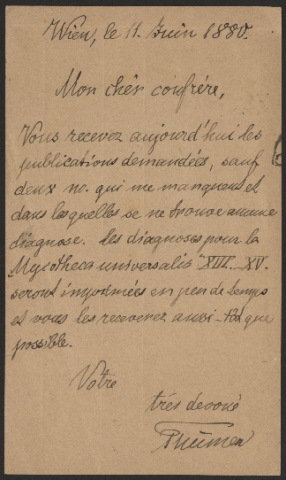 Wien, le 11. Juin 1880.
Mon chèr confrère,
Vous recevez aujourd'hui les
publications demandées, sauf
deux no. qui me manquent et
dans lesquelles se ne trouve aucune
diagnose. Les diagnoses pour la
Mycotheca universalis XIII–XV.
seront imprimées en peu de temps
et vous les recevrez aussi-tôt que
possible.
Votre
très devoué
Thümen